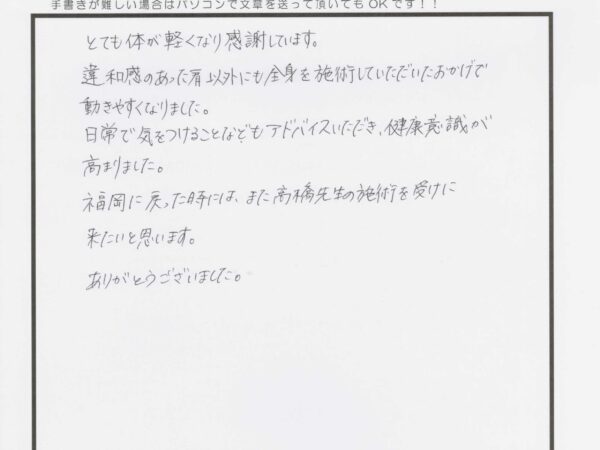 手書きが難しい場合はパソコンで文章を送って頂いてもOKです！！
とても体が軽くなり感謝しています。
違和感のあった肩以外にも全身を施術していただいたおかげで
動きやすくなりました。
日常で気をつけることなどもアドバイスいただき、健康意識が
高まりました。
福岡に戻った時には、また高橋先生の施術を受けに
来たいと思います。
ありがとうございました。